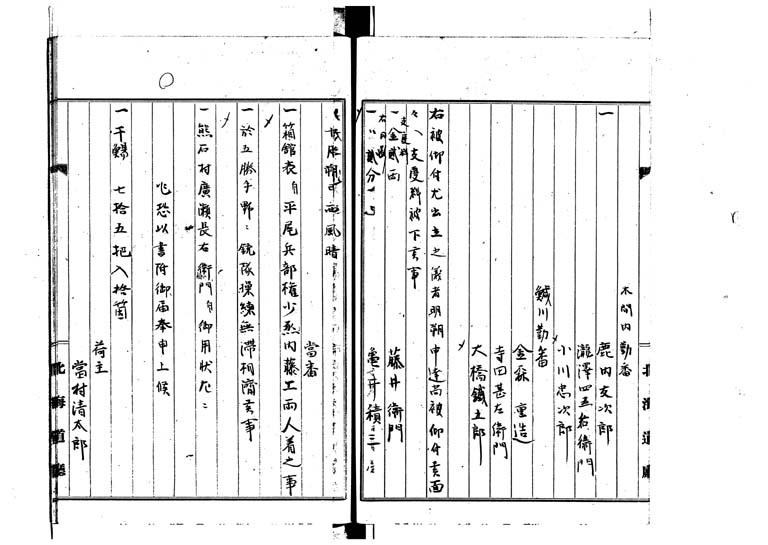 一
木間内勤番
鹿内支次郎
瀧澤四五右衛門
小川忠次郎
鍼川勤番
金森重造
寺田甚左衛門
大橋鐵五郎
右被仰付尤出立之儀者明朔申達尚被仰付候面
々、支度料被下候事
支度料
一金貳両
藤井衛門
一〃貳分
亀井積三
西風晴
當番
一箱館表ゟ平尾兵部権少丞内藤工両人着之事
一於五勝手野ニ銃隊操練無滞相濟候事
一熊石村廣瀬長右衛門ゟ御用状左ニ
乍恐以書附御届奉申上候
一干鰑 七拾五把入拾箇
荷主
當村清太郎
北海道廳
北海道廳